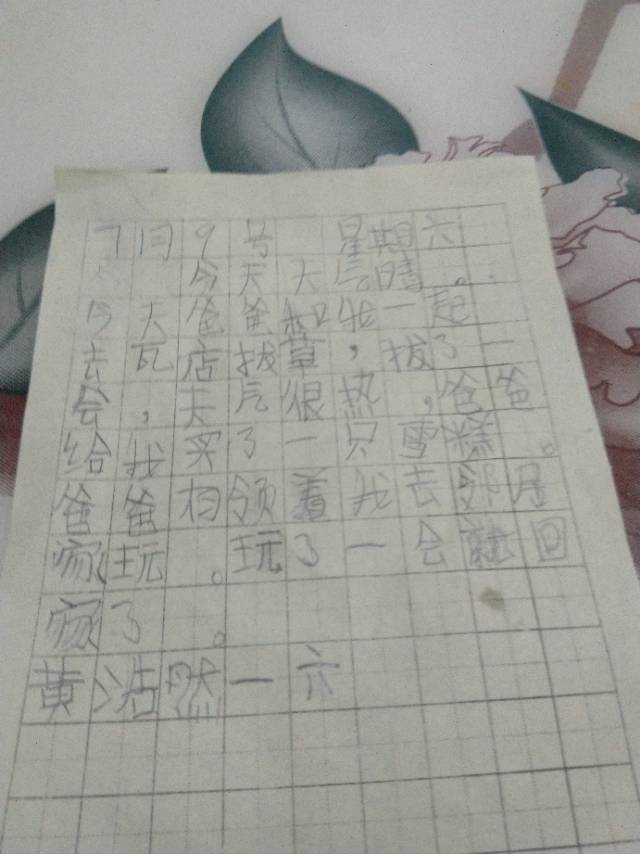 7月9号 星期六
今天天气晴。
今天爸爸和我一起
去瓦店拔草，拔了一
会，天气很热，爸爸
给我买了一只雪糕。
爸爸相领着我去邻居
家玩。玩了一会就回
家了。
黄浩然一六